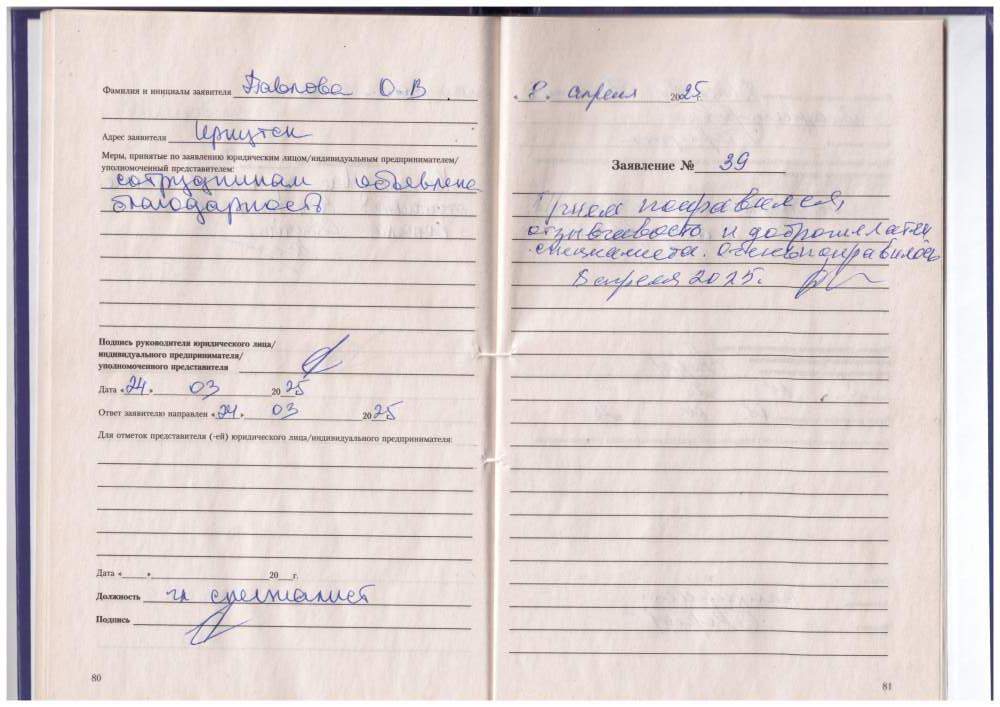 Фамилия и инициалы заявителя Павлова О.В
Адрес заявителя Иркутск
Меры, принятые по заявлению юридическим лицом/индивидуальным предпринимателем/
уполномоченный представителем:
сотрудникам объявлена
благодарность
Подпись руководителя юридического лица/
индивидуального предпринимателя/
уполномоченного представителя
Дата «24» 03 2025
Ответ заявителю направлен «24» 03 2025
Для отметок представителя (-ей) юридического лица/индивидуального предпринимателя:
Дата «      » 20   г.
Должность гл специалист
Подпись
80
8. апреля 2025г.
Заявление № 39
Прием понравился,
отзывчивость и доброжелател
специалиста. Очень понравилось
8 апреля 2025.
81